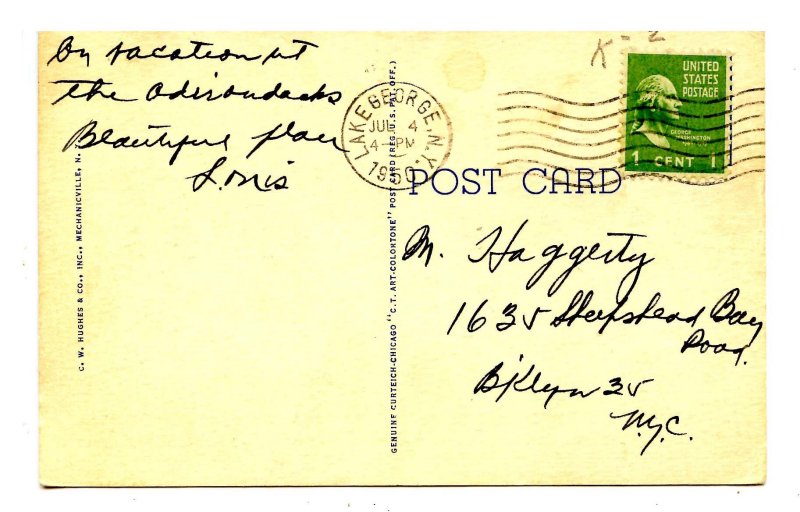 On vacation at
the Adirondacks
Beautiful place
Louis
C. W. HUGHES & CO., INC., MECHANICVILLE, N.
GENUINE CURTEICH-CHICAGO "C.T. ART-COLORTONE" POST CARD (REG. U.S. PAT. OFF.)
LAKE GEORGE, N.Y.
JUL 4
4-PM
1950
K-2
UNITED
STATES
POSTAGE
GEORGE
WASHINGTON
1 CENT 1
POST CARD
M. Haggerty
1635 Sheepshead Bay
Road.
B'klyn 35
N.Y.C.